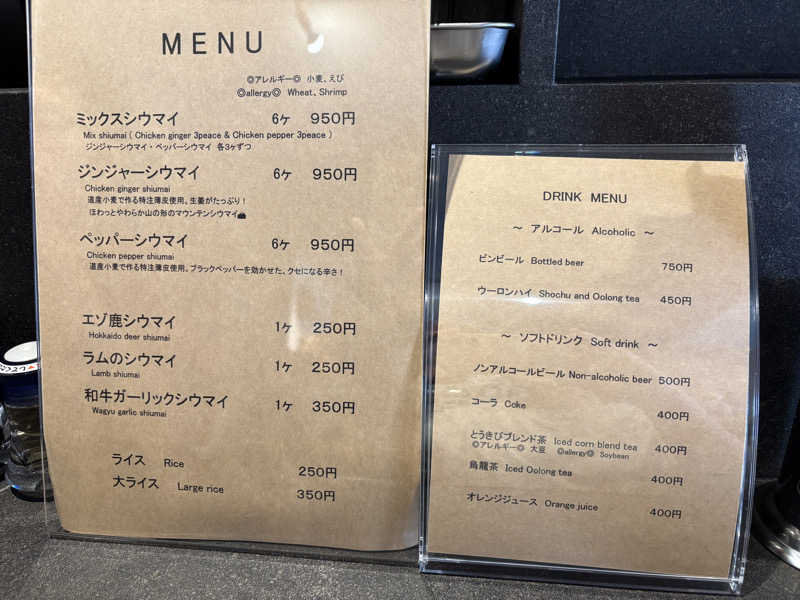 MENU
◎アレルギー◎ 小麦、えび
◎allergy◎ Wheat、Shrimp
ミックスシウマイ 6ヶ 950円
Mix shiumai ( Chicken ginger 3peace & Chicken pepper 3peace )
ジンジャーシウマイ・ペッパーシウマイ 各3ヶずつ
ジンジャーシウマイ 6ヶ 950円
Chicken ginger shiumai
道産小麦で作る特注薄皮使用。生姜がたっぷり！
ほわっとやわらか山の形のマウンテンシウマイ
ペッパーシウマイ 6ヶ 950円
Chicken pepper shiumai
道産小麦で作る特注薄皮使用。ブラックペッパーを効かせた、クセになる辛さ！
エゾ鹿シウマイ 1ヶ 250円
Hokkaido deer shiumai
ラムのシウマイ 1ヶ 250円
Lamb shiumai
和牛ガーリックシウマイ 1ヶ 350円
Wagyu garlic shiumai
ライス Rice 250円
大ライス Large rice 350円
DRINK MENU
～ アルコール Alcoholic ～
ビンビール Bottled beer 750円
ウーロンハイ Shochu and Oolong tea 450円
～ ソフトドリンク Soft drink ～
ノンアルコールビール Non-alcoholic beer 500円
コーラ Coke 400円
とうきびブレンド茶 Iced corn blend tea 400円
◎アレルギー◎ 大豆 ◎allergy◎ Soybean
烏龍茶 Iced Oolong tea 400円
オレンジジュース Orange juice 400円